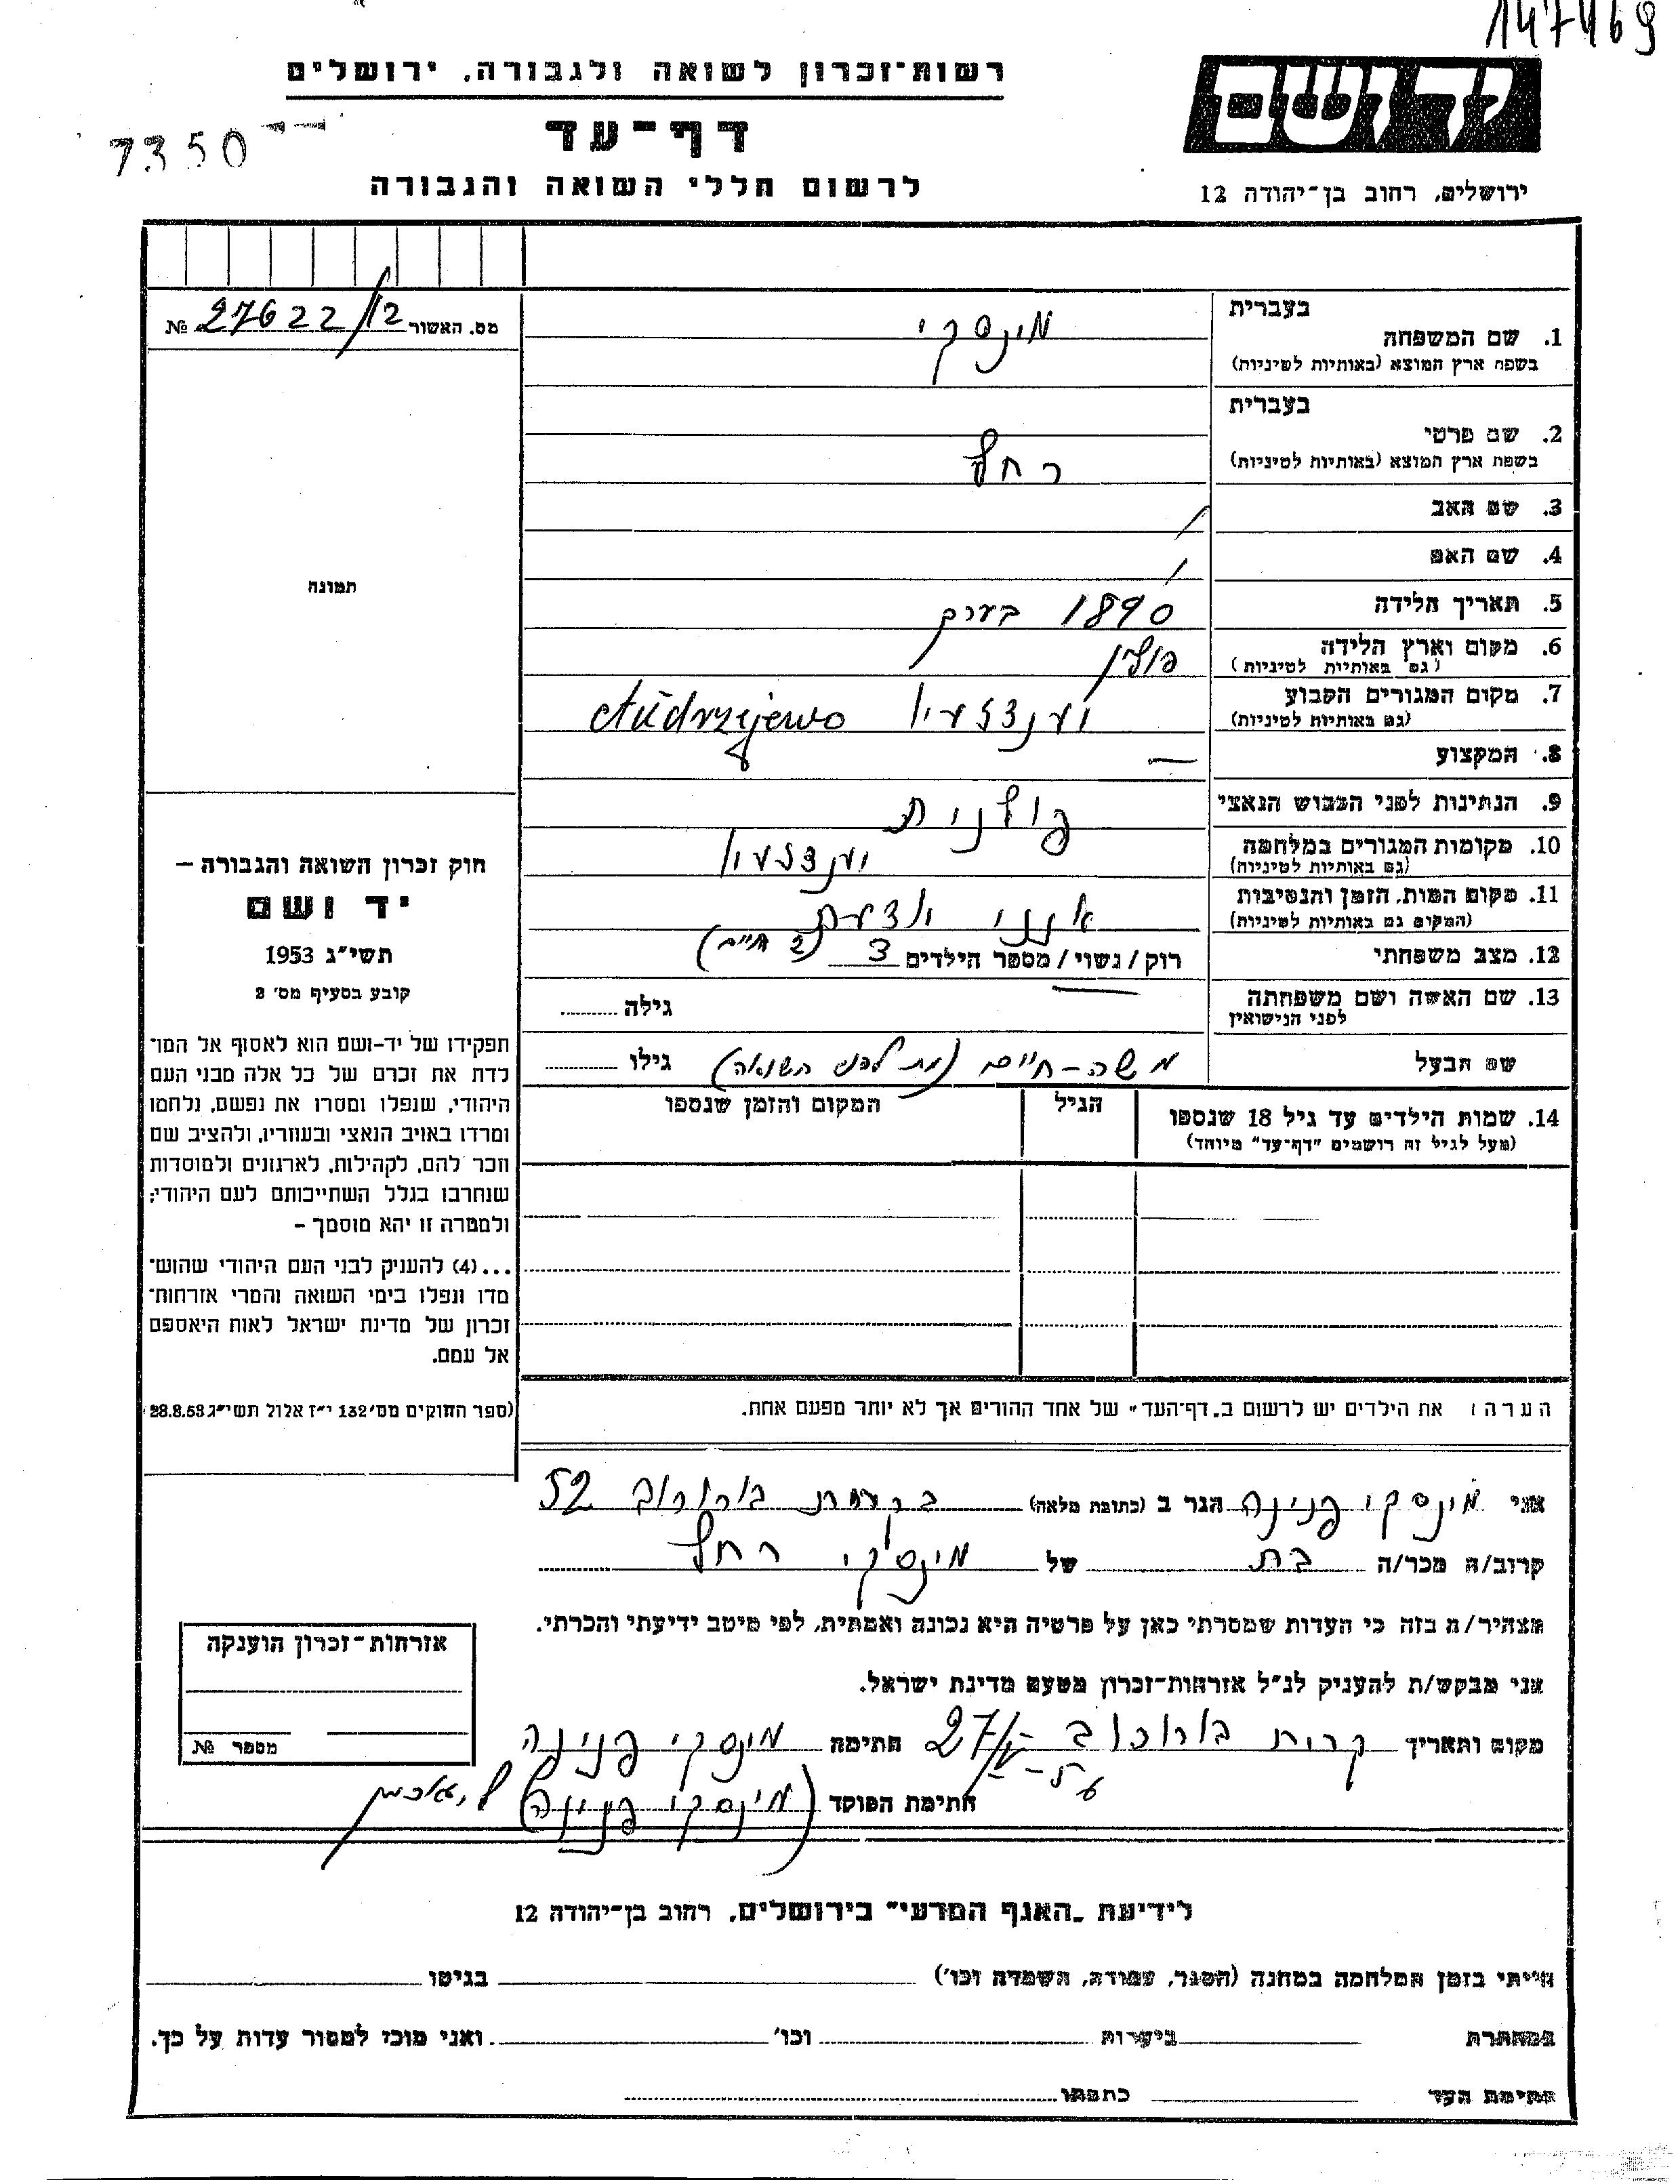 147469
יד ושם
ירושלים, רחוב בן־יהודה 12
רשות־זכרון לשואה ולגבורה, ירושלים
דף־עד
לרשום חללי השואה והגבורה
7350
מס. האשור 27622/12 №
תמונה
חוק זכרון השואה והגבורה –
יד ושם
תשי״ג 1953
קובע בסעיף מס׳ 2
תפקידו של יד-ושם הוא לאסוף אל המו־
לדת את זכרם של כל אלה מבני העם
היהודי, שנפלו ומסרו את נפשם, נלחמו
ומרדו באויב הנאצי ובעוזריו, ולהציב שם
וזכר להם, לקהילות, לארגונים ולמוסדות
שנחרבו בגלל השתייכותם לעם היהודי;
ולמטרה זו יהא מוסמך –
...(4) להעניק לבני העם היהודי שהוש־
מדו ונפלו בימי השואה והמרי אזרחות־
זכרון של מדינת ישראל לאות היאספם
אל עמם.
(ספר החוקים מס׳ 132 י״ז אלול תשי״ג 28.8.53)
בעברית
1. שם המשפחה מינסקי
בשפת ארץ המוצא (באותיות לטיניות)
בעברית
2. שם פרטי רחל
בשפת ארץ המוצא (באותיות לטיניות)
3. שם האב /
4. שם האם /
5. תאריך הלידה 1890 בערך
6. מקום וארץ הלידה פולין
(גם באותיות לטיניות)
7. מקום המגורים הקבוע Andrzejewo
(גם באותיות לטיניות)
8. המקצוע —
9. הנתינות לפני הכבוש הנאצי פולנית
10. מקומות המגורים במלחמה
(גם באותיות לטיניות)
11. מקום המות, הזמן והנסיבות אינני יודעת
(המקום גם באותיות לטיניות)
12. מצב משפחתי רוק / נשוי / מספר הילדים 3 (2 חיים)
13. שם האשה ושם משפחתה גילה
לפני הנישואין
שם הבעל משה-חיים (מת לפני השואה) גילו
14. שמות הילדים עד גיל 18 שנספו הגיל המקום והזמן שנספו
(מעל לגיל זה רושמים "דף־עד" מיוחד)
הערה: את הילדים יש לרשום ב„דף־העד" של אחד ההורים אך לא יותר מפעם אחת.
אני מינסקי פנינה הגר ב (כתובת מלאה) בקרית בורוכוב 52
קרוב/ה מכר/ה בת של מינסקי רחל
מצהיר/ה בזה כי העדות שמסרתי כאן על פרטיה היא נכונה ואמתית, לפי מיטב ידיעתי והכרתי.
אני מבקש/ת להעניק לנ״ל אזרחות־זכרון מטעם מדינת ישראל.
מקום ותאריך קרית בורוכוב 27/ חתימה מינסקי פנינה
חתימת הפוקד (מינסקי פנינה)
אזרחות־זכרון הוענקה
מספר №
לידיעת „האגף המדעי" בירושלים, רחוב בן־יהודה 12
הייתי בזמן המלחמה במחנה (הסגר, עבודה, השמדה וכו׳) בגיטו
במחתרת ביערות וכו׳ ואני מוכן למסור עדות על כך.
חתימת העד כתבתו